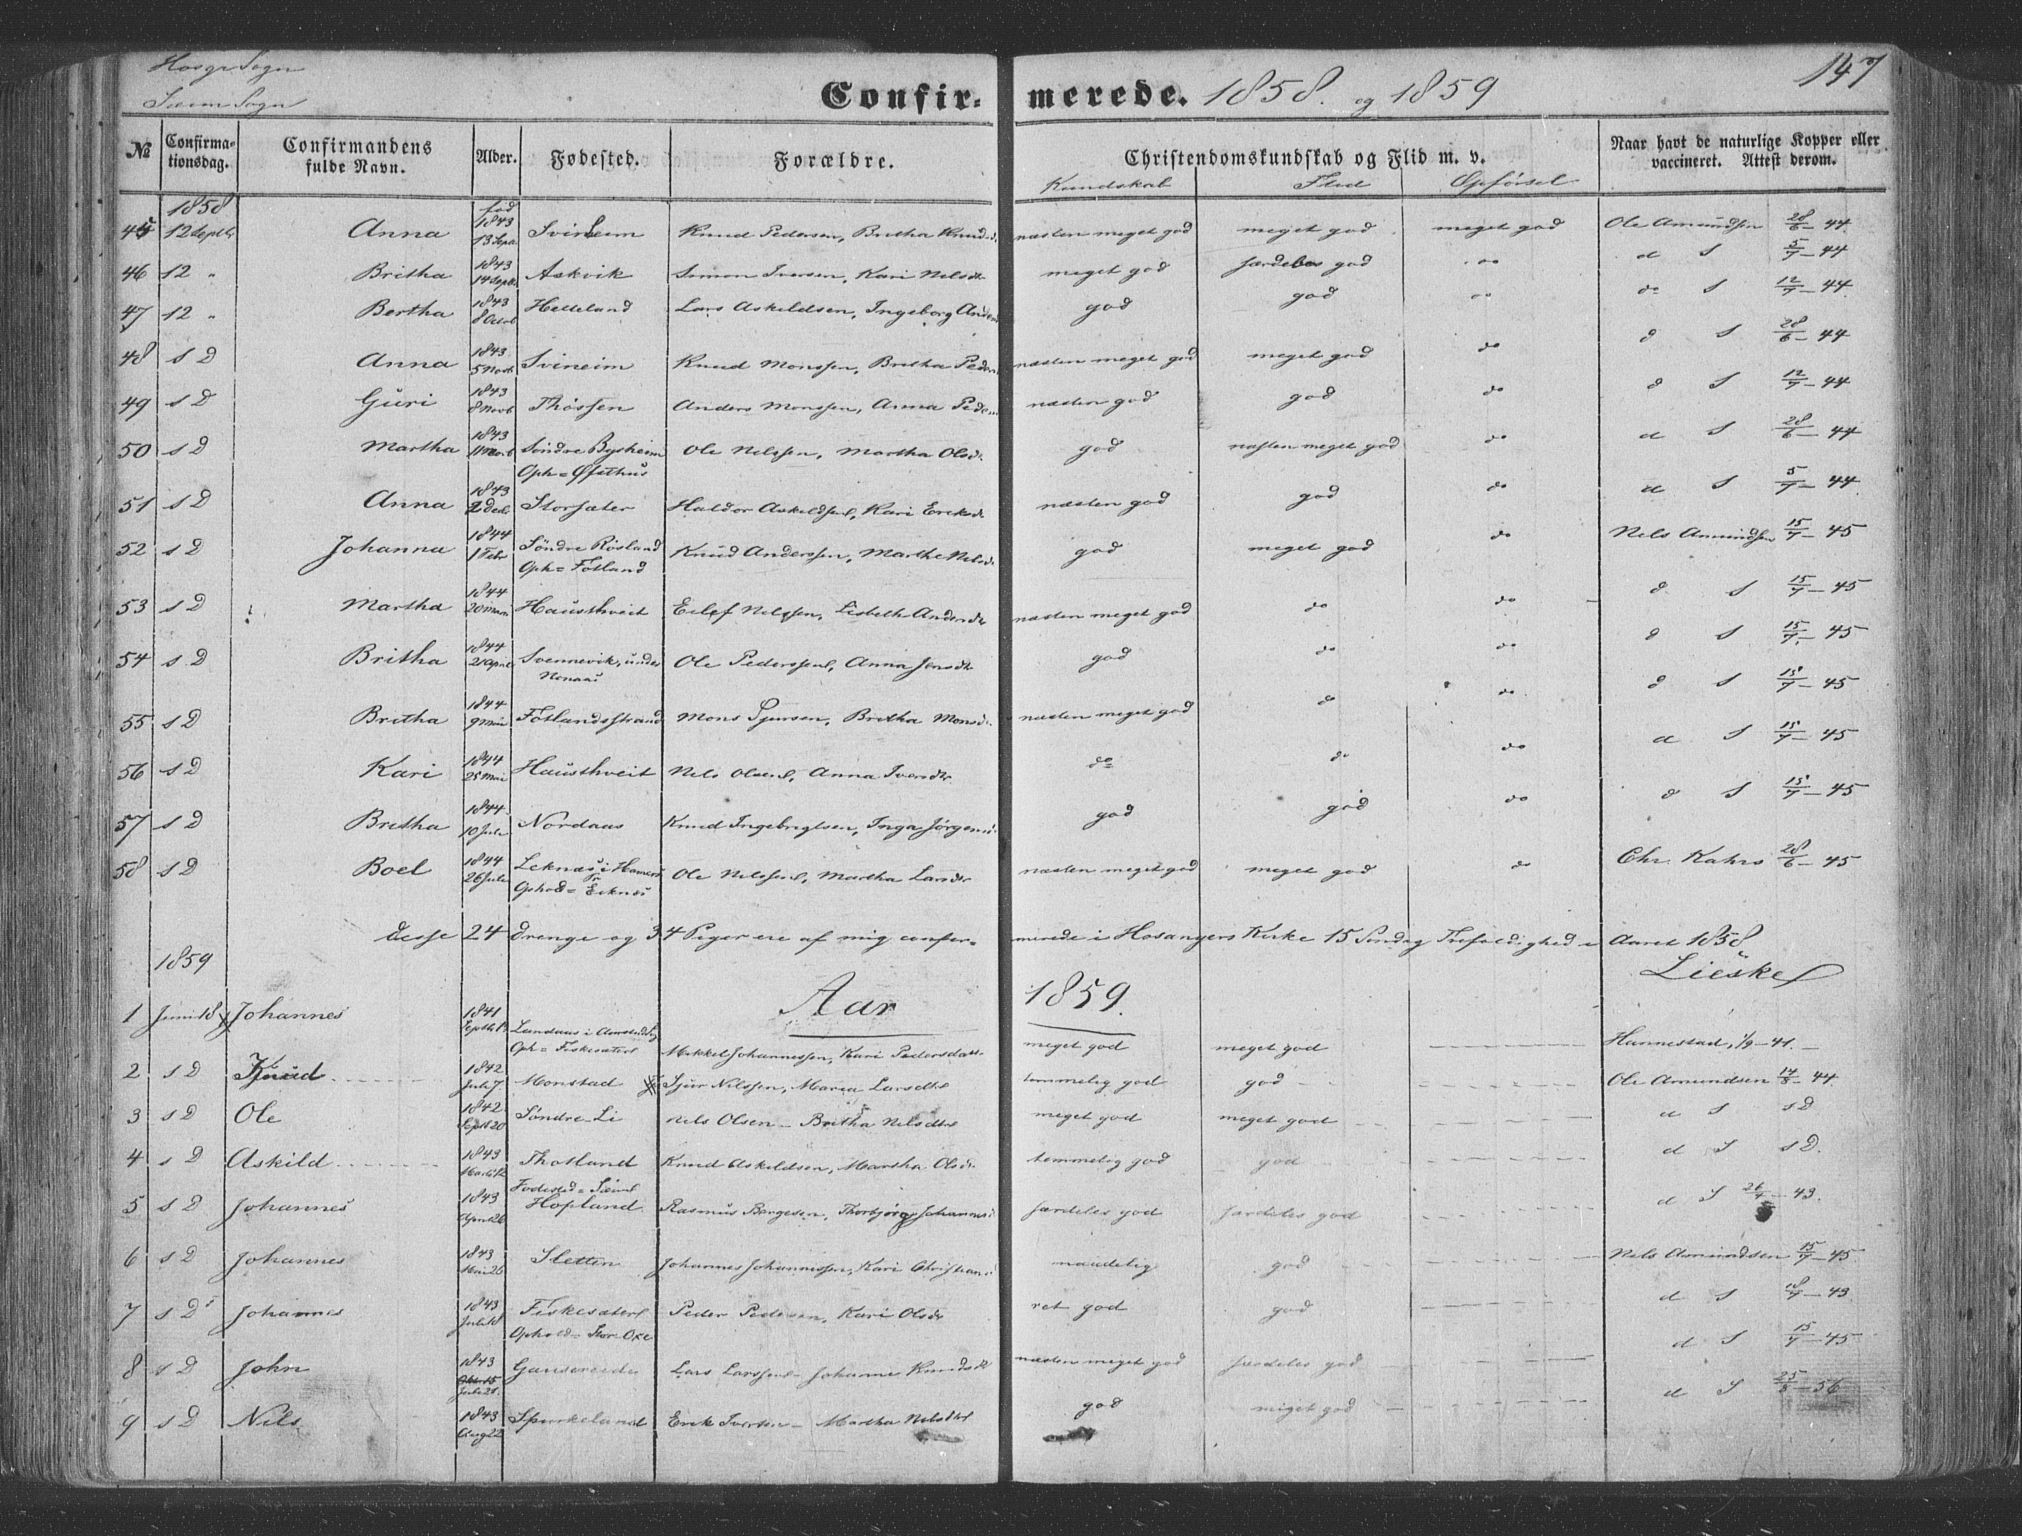 Hosgr Sogn
Sæim Sogn
Confir- merede. 1858. og 1859
147
№ Confirmationsdag. Confirmandens fulde Navn. Alder. Fødested. Forældre. Christendomskundskab og Flid m. v. Naar havt de naturlige Kopper eller vaccineret. Attest derom.
Kundskab Flid Opførsel
1858 fød
45 12 Septbr Anna 1843 13 Sept Svinheim Knud Pedersen, Britha Knuds næsten meget god meget god meget god Ole Amundsen 28/6 - 44
46 12 " Britha 1843 14 Septb Askvik Simon Iversen, Kari Nelsdtr meget god særdeles god do d S 5/7 - 44
47 12 " Bertha 1843 8 Octob Helleland Lars Askeldsen, Ingeborg Anders god god do do S 12/7 - 44
48 s D Anna 1843 5 Novb Svineim Knud Monssen, Britha Peders næsten meget god meget god do d S 28/6 - 44
49 s D Guri 1843 8 Novb Thossen Anders Monssen, Anna Peds næsten god god do d S 12/7 - 44
50 s D Martha 1843 11 Novb Søndre Bysheim Ole Nelssen, Martha Olsd. god næsten meget god do d S 28/6 - 44
Oph = Øfsthus
51 s D Anna 1843 2 Decb Storsæter Haldor Askeldsen, Kari Ericksdr næsten god god do d S 5/7 - 44
52 s D Johanna 1844 1 Febr Søndre Røsland Knud Anderssen, Marthe Nelsd. god meget god do Nels Amundsen 15/7 - 45
Oph = Fotland
53 s D Martha 1844 20 Mars Hausthveit Eilef Nelssen, Lisbeth Andersdtr næsten meget god do do d S 15/7 - 45
54 s D Britha 1844 21 April Svennevik, under Ole Pederssen, Anna Jonsdtr god do do d S 15/7 - 45
Nonaas
55 s D Britha 1844 9 Mai Fotlandsstrand Mons Sjursen, Britha Monsd. næsten meget god do do d S 15/7 - 45
56 s D Kari 1844 25 Mai Hausthveit Nels Olsen, Anna Iversdtr do do do d S 15/7 - 45
57 s D Britha 1844 10 Juli Nordaas Knud Ingebrigtsen, Inga Jørgensd. god god do d S 15/7 - 45
58 s D Boel 1844 26 Juli Leknæs i Hamers Ole Nelssen, Martha Larsdr næsten meget god meget god do Chr. Kahrs 28/6 - 45
Ophod = Eeknæs
desse 24 drenge og 34 Piger ere af mig confir- merede i Hosangers Kirke 15 Søndag Trefoldighed i Aaret 1858
Lieske
1859 Aar 1859.
1 Juni 18 Johannes 1841 Septb Landaas i Meket Johannessen, Kari Pedersdatt meget god meget god Hannestad, 1/9 - 41.
Oph = Fiskesæter
2 s D Knud 1842 Juli 7 Monstad Sjur Nilssen, Maria Larsdtr temmelig god god Ole Amundsen 14/8 - 44.
3 s D Ole 1842 Sept 20 Søndre Li Nels Olsen - Britha Nelsdtr meget god meget god d S s D
4 s D Askild 1843 Thotland Knud Askeldsen, Martha Olsd. temmelig god god d S s D.
5 s D Johannes 1843 April 26 Fødested = Sæim
Hopland Rasmus Børgesen, Thorbjørg Johannsd særdeles god særdeles god d S 26/4 - 43.
6 s D Johannes 1843 Mai 25 Sletten Johannes Johannessen, Kari Christians maadelig god Nils Amundsen 15/7 - 45
7 s D Johannes 1843 Juli 8 Fiskesæter Peder Pedersen, Kari Olsdtr ret god god d S 18/7 - 43
Ophold = Store Oxe
8 s D John 1843 Juli 21. Gausereide Lars Larssen - Johanne Knudsdt næsten meget god særdeles god d S 15/7 - 45
9 s D Nils 1843 Aug 22 Spurkeland Erik Iversen - Martha Nelsdtr god meget god d S 25/8 - 56